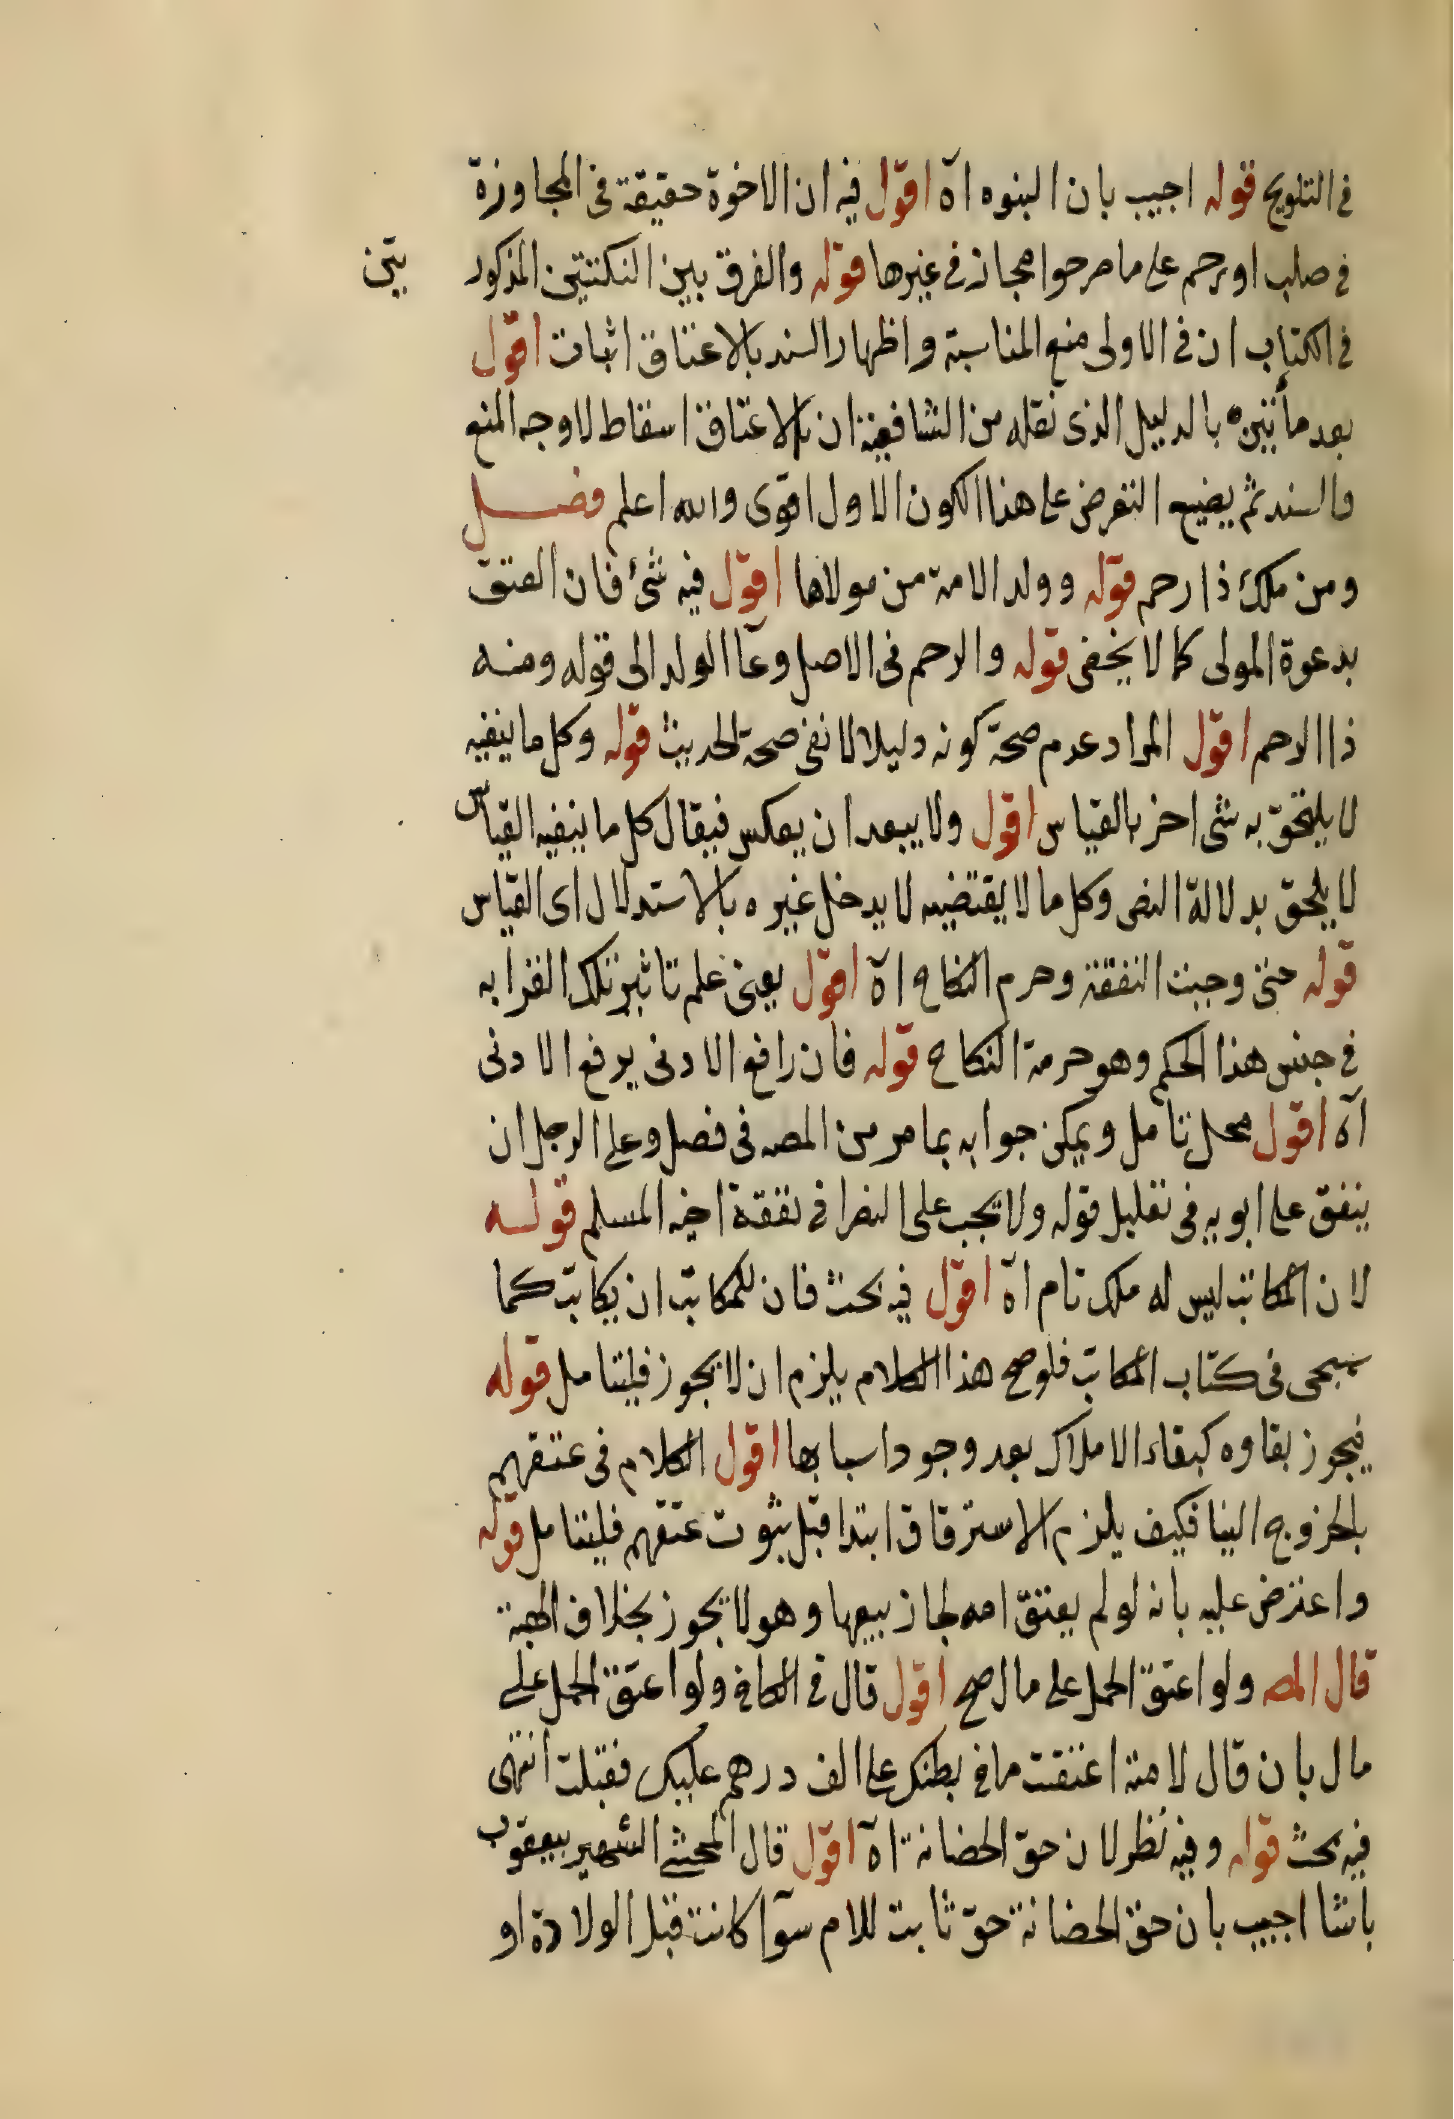 في التلويح قوله اجيب بان البنوه اه اقول فيه ان الاخوة حقيقة في المجاوزة
في صلب او رحم على ما صرحوا مجاز في غيرها قوله والفرق بين النكتتين المذكور
تين
في الكتاب ان في الاولى منع المناسبة واظهار السند بالاعتاق اثبات اقول
بعد ما بالدليل الذي نقله من الشافعية ان بالاعتاق اسقاط لا وجه المنع
والسند ثم يضيع التعرض على هذا الكون الاول اقوى والله اعلم فصل
ومن ملك ذا رحم قوله وولد الامة من مولاها اقول فيه شئ فان العتق
بدعوة المولى كما لا يخفى قوله والرحم في الاصل وعآ الولد الى قوله ومنه
ذا الرحم اقول المراد عدم صحة كونه دليلا لا نفى صحة الحديث قوله وكل ما ينفيه
لا يلتحق به شى اخر بالقياس اقول ولا يبعد ان يعكس فيقال كل ما ينفيه القياس
لا يلحق بدلالة النص وكل ما لا يقتضيه لا يدخل غيره بالاستدلال اى القياس
قوله حتى وجبت النفقة وحرم النكاح اه اقول يعنى علم تاثير تلك القرابه
في جنس هذا الحكم وهو حرمة النكاح قوله فان رافع الادنى يرفع الادنى
اه اقول محل تامل ويمكن جوابه بما مر من المصه فى فصل وعلى الرجل ان
ينفق على ابويه فى تعليل قوله ولا يجب على النصرانى نفقة اخيه المسلم قوله
لان المكاتب ليس له ملك تام اه اقول فيه بحث فان للمكاتب ان يكاتب كما
سيجى فى كتاب المكاتب فلو صح هذا الكلام يلزم ان لا يجوز فليتامل قوله
فيجوز بقاوه كبقاء الاملاك بعد وجود اسبابها اقول الكلام فى عتقهم
بالخروج الينا فكيف يلزم الاسترقاق ابتدا قبل ثبوت عتقهم فليتامل قوله
واعترض عليه بانه لو لم يعتق امه لجاز بيعها وهو لا يجوز بخلاف الهبة
قال المصه ولو اعتق الحمل على مال صح اقول قال في الكافي ولو اعتق الحمل على
مال بان قال لامته اعتقت ما في بطنك على الف درهم عليك فقبلت انتهى
فيه بحث قوله وفيه نظر لان حق الحضانة اه اقول قال المحشى الشهير بيعقوب
باشا اجيب بان حق الحضانة حق ثابت للام سوآ كانت قبل الولادة او